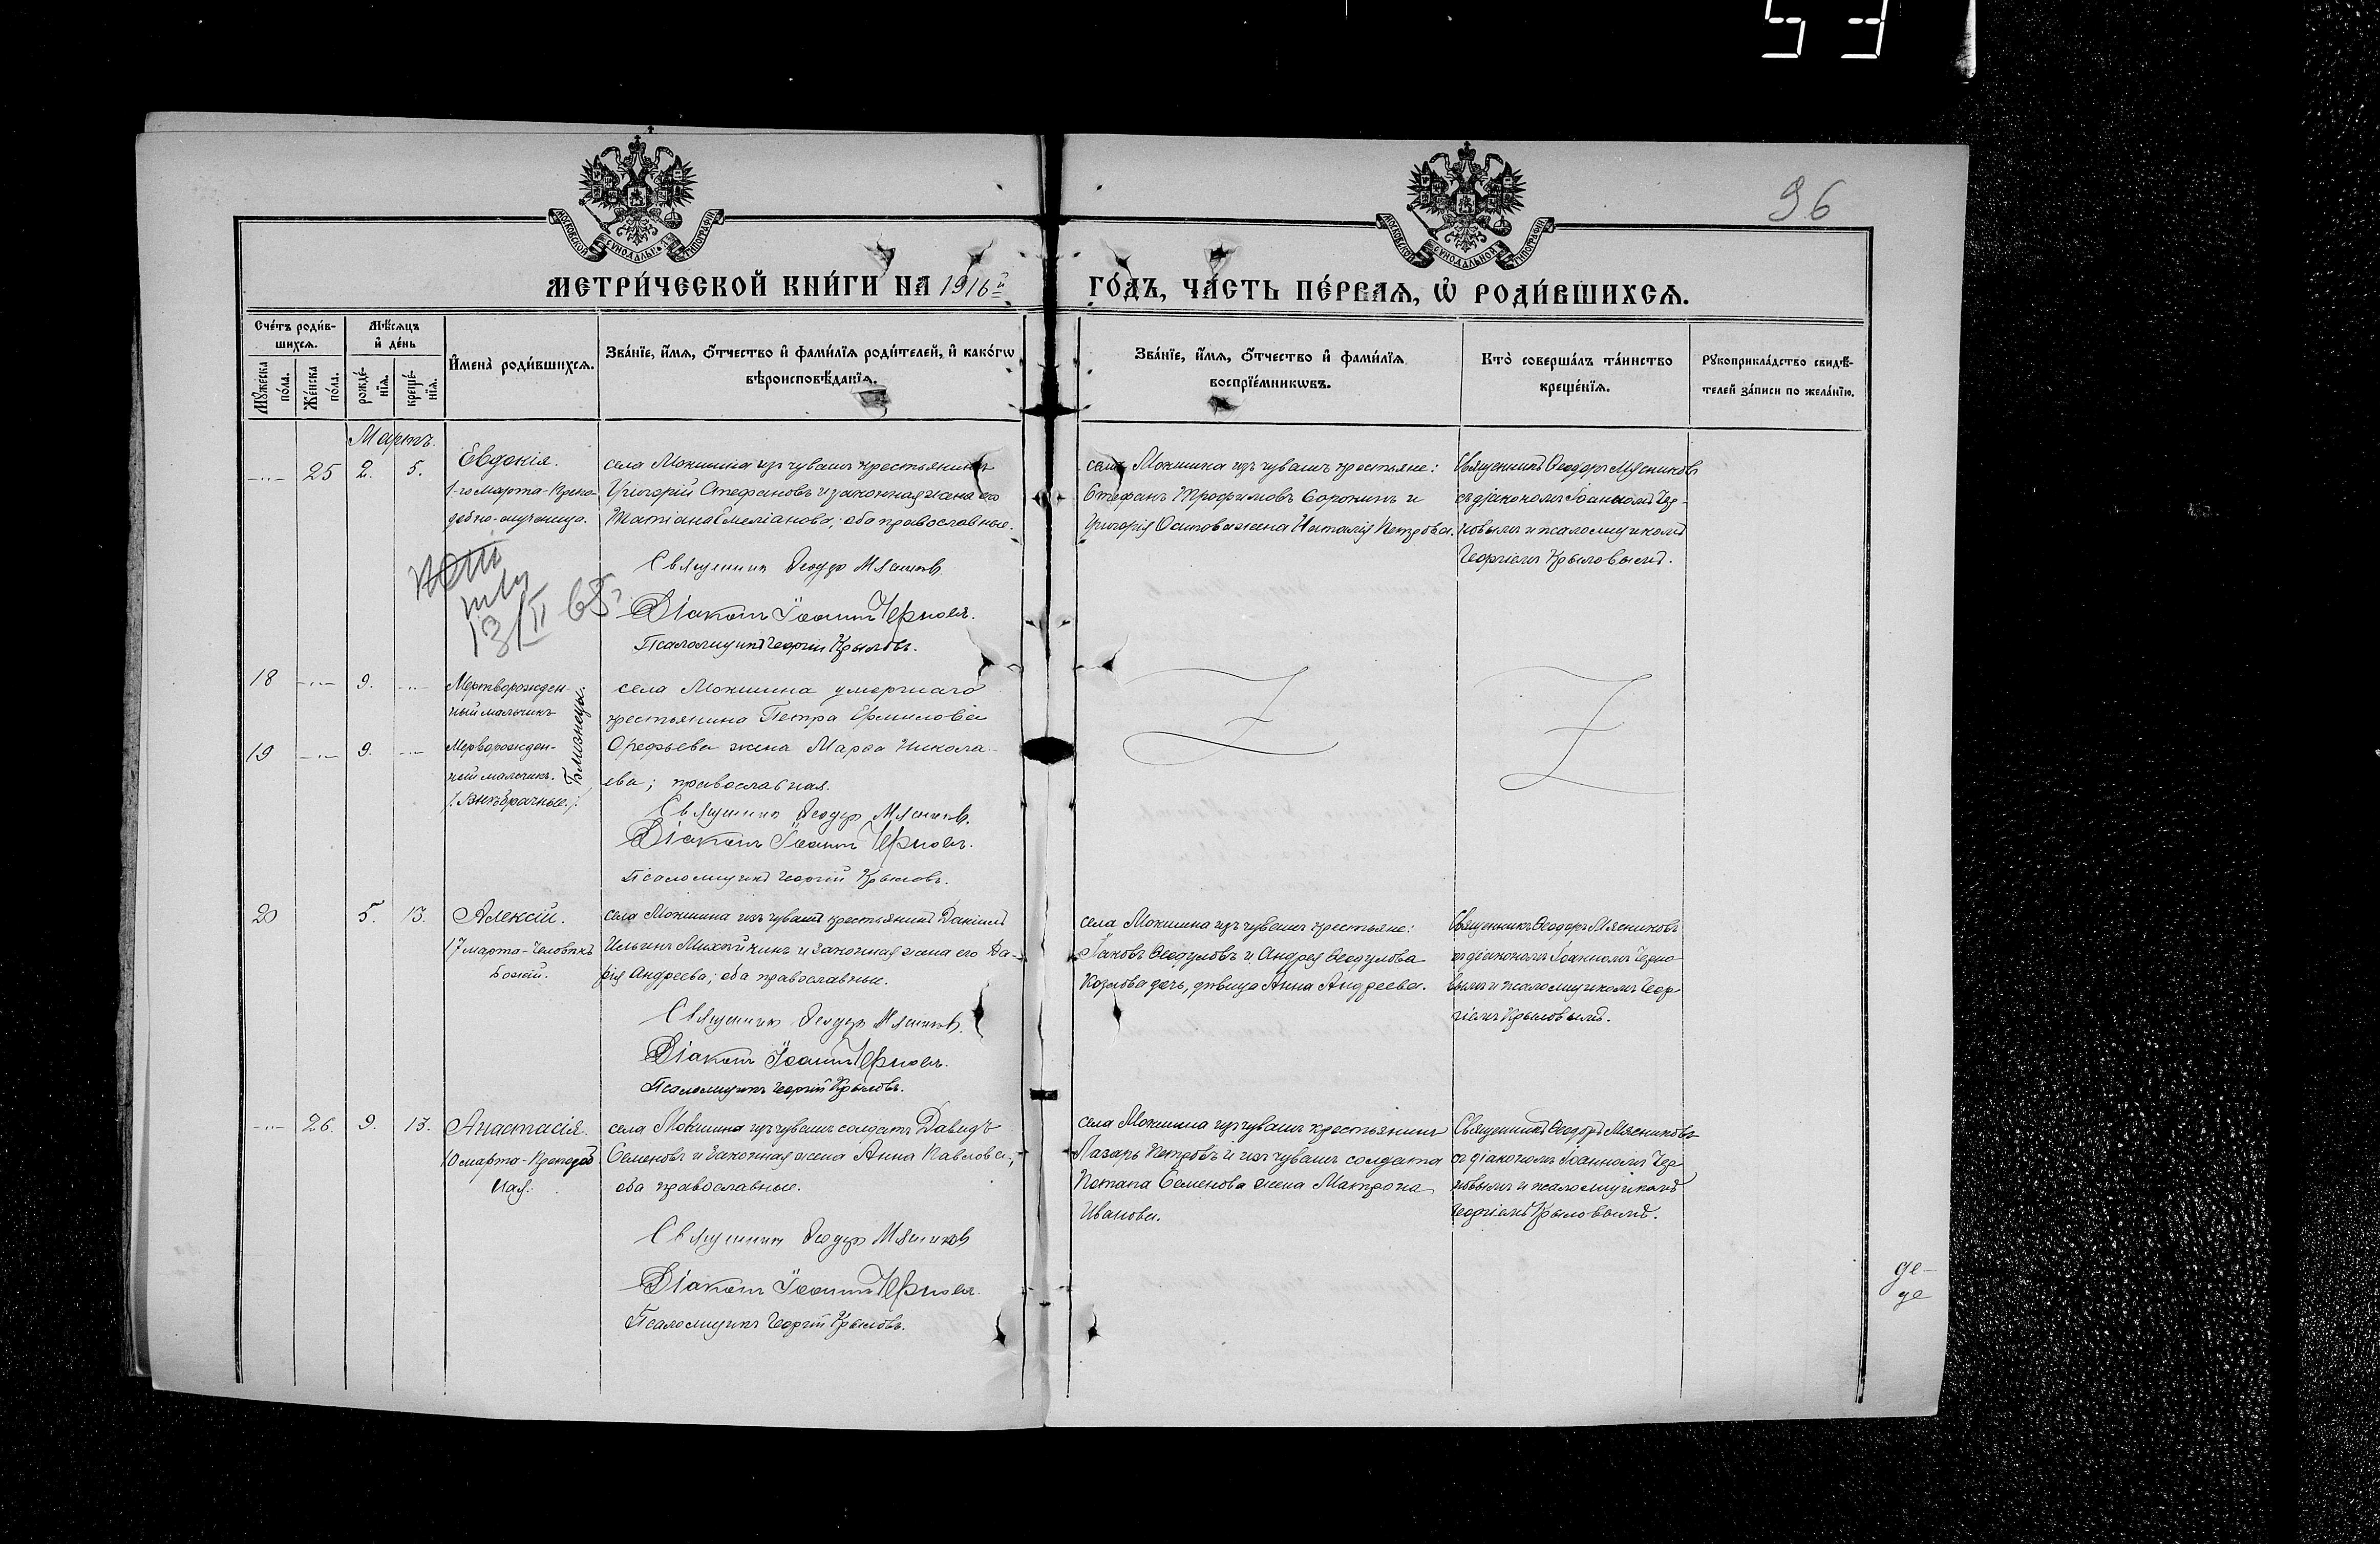 96
МЕТРИ́ЧЕСКОЙ КНИ́ГИ НА 1916й ГО́ДЪ, ЧА́СТЬ ПЕ́РВАѦ, Ѡ РОДИ́ВШИХСѦ.
Сче́тъ роди́в-
шихсѧ.
Мѣ́сѧцъ
и де́нь
Мꙋ́жеска по́ла.
Же́нска по́ла.
рожде́-
нїѧ.
креще́-
нїѧ.
Имена̀ роди́вшихсѧ.
Зва́нїе, и́мѧ, ѻ́тчество и фами́лїѧ роди́телей, и како́гѡ
вѣроисповѣ́данїѧ.
Зва́нїе, и́мѧ, ѻ́тчество и фами́лїѧ
воспрїе́мникѡвъ.
Кто̀ соверша́лъ та́инство
креще́нїѧ.
Рꙋкоприкла́дство свидѣ́-
телей за́писи по жела́нїю.
Мартъ.
25 2. 5. Евдокія.
1-го Марта-Препо-
добно-мученица.
села Мокшина изъ чувашъ крестьянинъ
Григорій Стефановъ и законная жена его
Татіана Емеліанова; оба православные.
Священникъ Ѳеодоръ Мясниковъ.
Діаконъ Іоаннъ Черновъ.
Псаломщикъ Георгій Крыловъ.
села Мокшина изъ чувашъ крестьяне:
Стефанъ Трофимовъ Сорокинъ и
Григорія Осипова жена Наталія Петрова.
Священникъ Ѳеодоръ Мясниковъ
съ діакономъ Іоанномъ Чер-
новымъ и псаломщикомъ
Георгіемъ Крыловымъ.
13/II 65
18 9. Мертворожден-
ный мальчикъ
19 9. Мерворожден-
ный мальчикъ.
/: Внѣбрачные. :/
Близнецы.
села Мокшина умершаго
крестьянина Петра Ермилова
Орефьева жена Марѳа Никола-
ева; православная.
Священникъ Ѳеодоръ Мясниковъ.
Діаконъ Іоаннъ Черновъ.
Псаломщикъ Георгій Крыловъ.
20 5. 13. Алексій.
17 марта-Человѣкъ
Божій.
села Мокшина изъ чувашъ крестьянинъ Даніилъ
Ильинъ Михайкинъ и законная жена его Да-
рія Андреева; оба православные.
Священникъ Ѳеодоръ Мясниковъ.
Діаконъ Іоаннъ Черновъ.
Псаломщикъ Георгій Крыловъ.
села Мокшина изъ чувашъ крестьяне:
Іаковъ Ѳеодуловъ и Андрея Ѳеодулова
Козлова дочь, дѣвица Анна Андреева.
Священникъ Ѳеодоръ Мясниковъ
съ діакономъ Іоанномъ Черно-
вымъ и псаломщикомъ Геор-
гіемъ Крыловымъ.
26. 9. 13. Анастасія.
10 марта-Преподоб-
ная.
села Мокшина изъ чувашъ солдатъ Давидъ
Семеновъ и законная жена Анна Павлова;
оба православные.
Священникъ Ѳеодоръ Мясниковъ
Діаконъ Іоаннъ Черновъ.
Псаломщикъ Георгій Крыловъ.
села Мокшина изъ чувашъ крестьянинъ
Лазарь Петровъ и изъ чувашъ солдата
Потапа Семенова жена Матрона
Иванова.
Священникъ Ѳеодоръ Мясниковъ
съ діакономъ Іоанномъ Чер-
новымъ и псаломщикомъ
Георгіемъ Крыловымъ.
де-
де